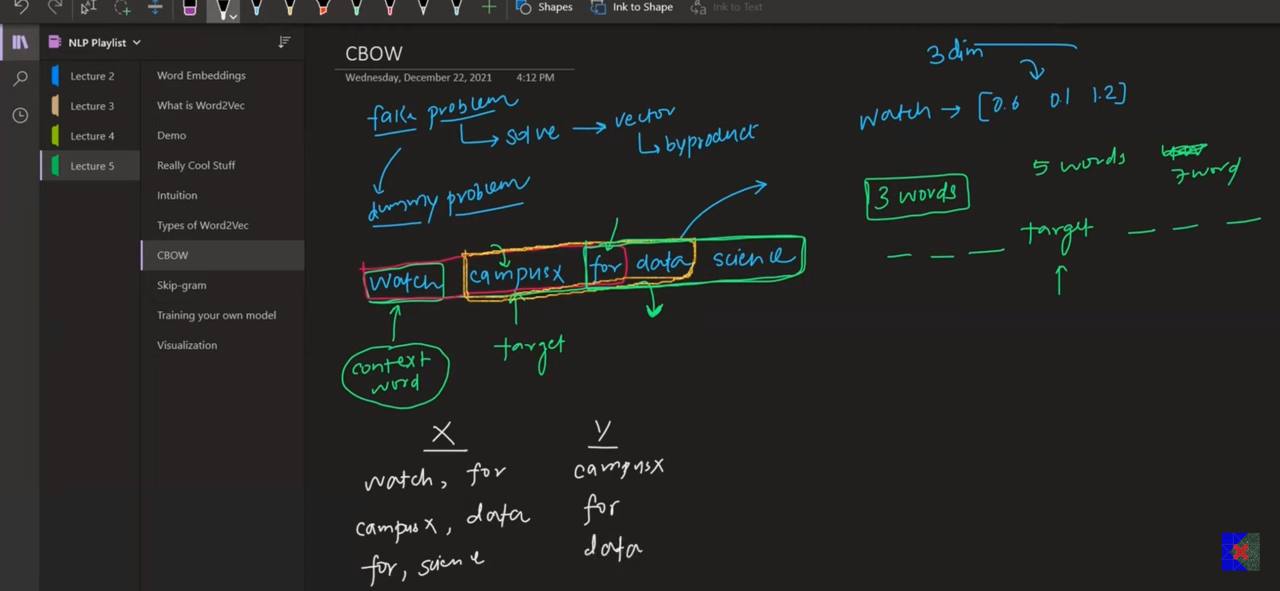 Shapes
Ink to Shape
Ink to Text
NLP Playlist
Lecture 2
Lecture 3
Lecture 4
Lecture 5
Word Embeddings
What is Word2Vec
Demo
Really Cool Stuff
Intuition
Types of Word2Vec
CBOW
Skip-gram
Training your own model
Visualization
CBOW
Wednesday, December 22, 2021 4:12 PM
fake problem
solve → vector
byproduct
dummy problem
3 dim
watch → [0.6 0.1 1.2]
3 words
5 words
7 word
target
watch campusx for data science
context
word
target
X Y
watch, for campusx
campusx, data for
for, science data